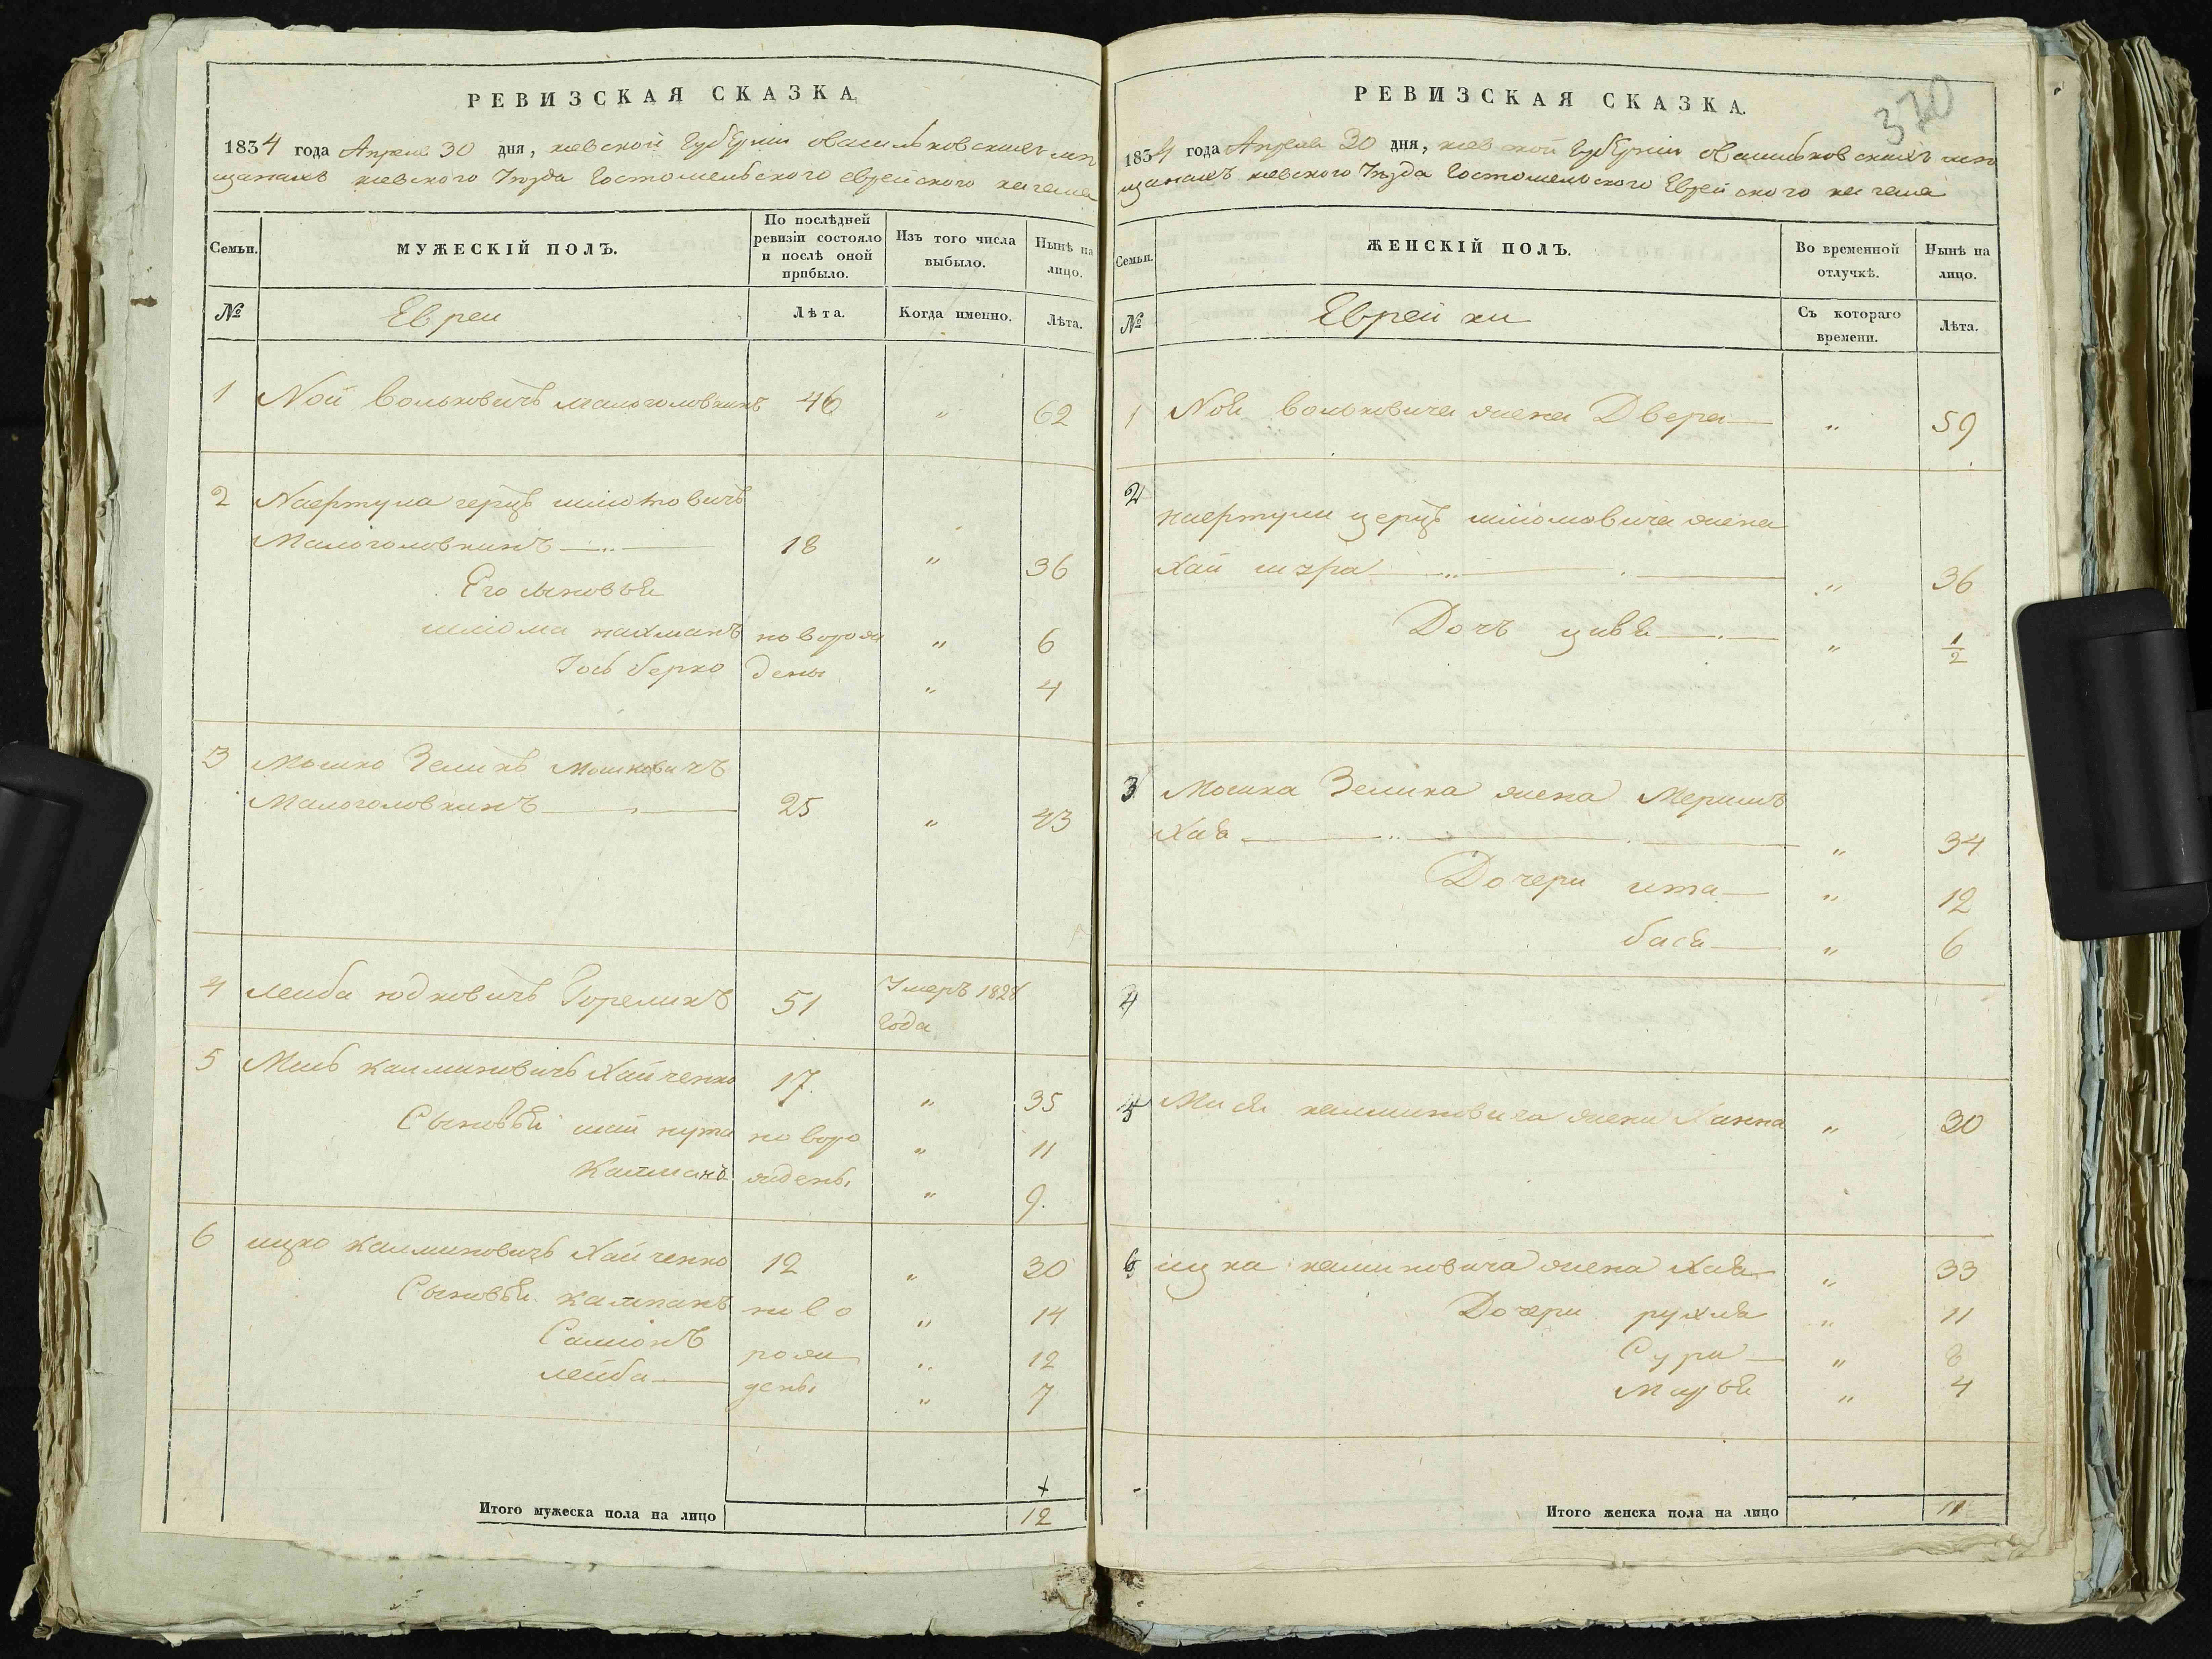 РЕВИЗСКАЯ СКАЗКА
1834 года Апреля 30 дня, киевской губерніи овасильковскихъ мѣ
щанахъ киевского уѣзда Гостомельского еврейского кагала
Семьи.
МУЖЕСКІЙ ПОЛЪ.
По послѣдней ревизіи состояло и послѣ оной прибыло.
Изъ того числа выбыло.
Нынѣ на лицо.
№
Евреи
Лѣта.
Когда именно.
Лѣта.
1 Ной Вольковичъ Малоголовкинъ 46 " 62
2 герцъ
Малоголовкинъ 18 " 36
Его сыновья
шліома нахманъ новорож " 6
Іось берко дены " 4
3 Мошко Зеликъ Мошковичъ
Малоголовкинъ 25 " 43
4 Лейба Юдковичъ Гореликъ 51 Умеръ 1828
года
5 калмановичъ Хайченко 17 " 35
Сыновья новоро " 11
Калманъ ждены " 9.
6 ицко калмановичъ Хайченко 12 " 30
Сыновья калманъ ново " 14
рож " 12
лейба дены " 7
Итого мужеска пола на лицо 12
РЕВИЗСКАЯ СКАЗКА.
370
1834 года Апреля 30 дня, киевской губерніи овасильковскихъ мѣ
щанахъ киевского уѣзда Гостомельского Еврейского кагала
Семьи.
ЖЕНСКІЙ ПОЛЪ.
Во временной отлучкѣ.
Нынѣ на лицо.
№
Еврейки
Съ котораго времени.
Лѣта.
1 Ноя вольковича жена Двера " 59
2 шліомовича жена
Хай " 36
Дочъ цивя " 1/2
3 Мошка Зелика жена
Хая " 34
Дочери ита " 12
бася " 6
4
5 калмановича жена Ханна " 30
6 ицка калмановича жена Хая " 33
Дочери рухля " 11
Сура " 8
" 4
Итого женска пола на лицо 11